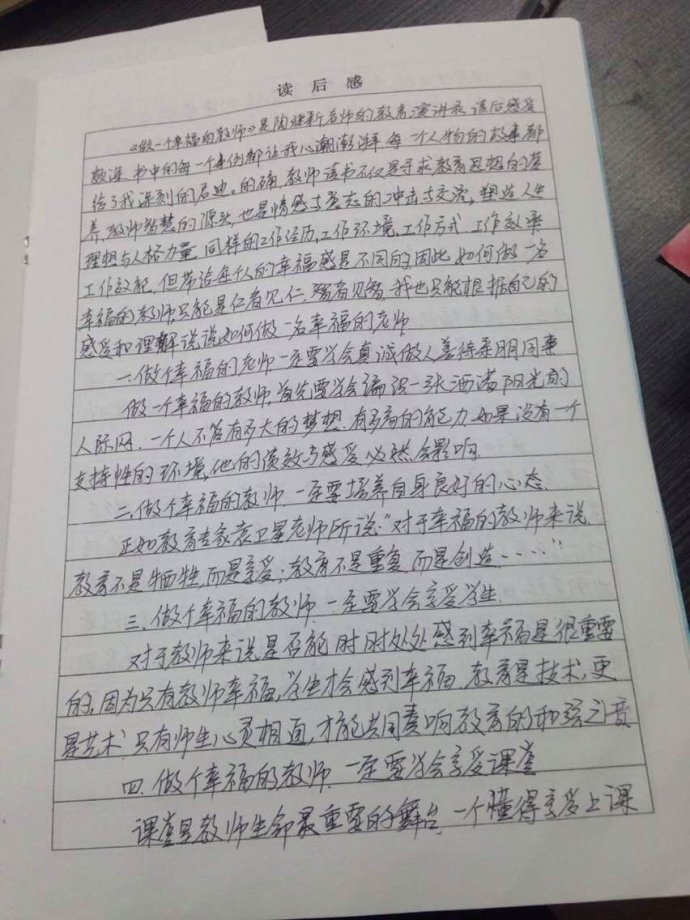 读后感
《做一个幸福的教师》是陶继新老师的教育演讲录,读后感受
颇深,书中的每一个事例都让我心潮澎湃,每一个人物的故事都
给了我深刻的启迪。的确,教师读书不仅是寻求教育思想的营
养,教师智慧的源头,也是情感与意志的冲击与交流,塑造人生
理想与人格力量,同样的工作经历,工作环境,工作方式,工作效率
工作效能,但带给每个人的幸福感是不同的,因此,如何做一名
幸福的教师只能是仁者见仁,智者见智,我也只能根据自己的
感受和理解说说如何做一名幸福的老师
一.做个幸福的老师一定要学会真诚做人善待亲朋同事
做一个幸福的教师,首先要学会编织一张洒满阳光的
人际网,一个人不管有多大的梦想,有多高的能力,如果没有一个
支持性的环境,他的绩效与感受必然会影响.
二.做个幸福的教师,一定要培养自身良好的心态.
正如教育专家袁卫星老师所说:“对于幸福的教师来说,
教育不是牺牲,而是享受;教育不是重复,而是创造......”
三.做个幸福的教师,一定要学会享受学生
对于教师来说是否能时时处处感到幸福是很重要
的,因为只有教师幸福,学生才会感到幸福,教育是技术,更
是艺术,只有师生心灵相通,才能共同奏响教育的和弦之音
四.做个幸福的教师,一定要学会享受课堂
课堂是教师生命最重要的舞台,一个懂得享受上课